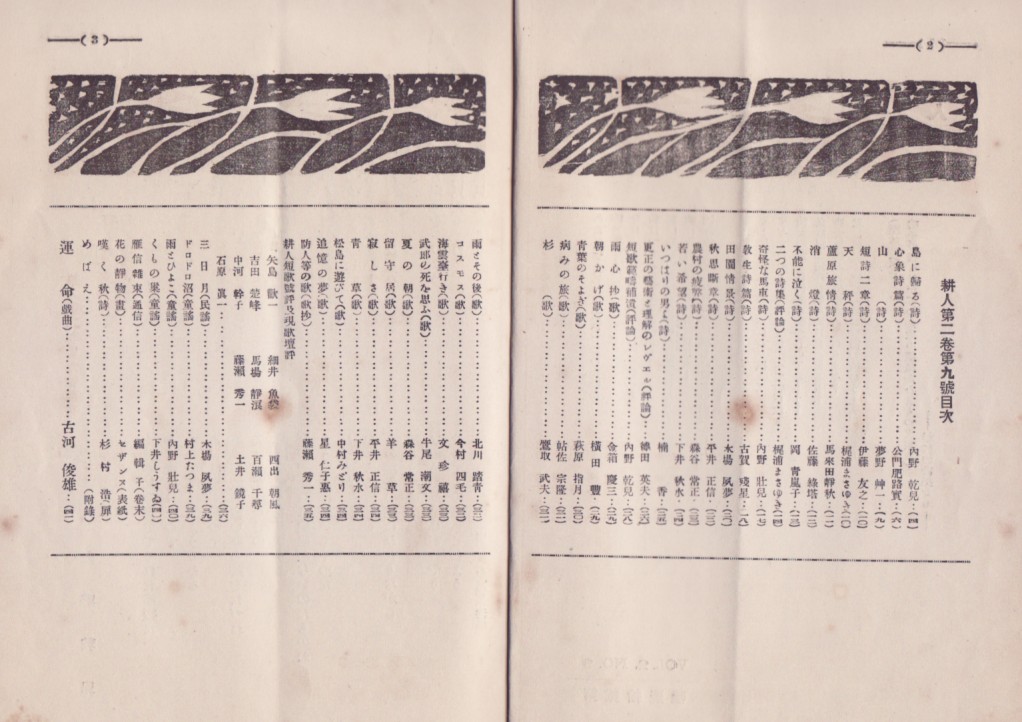 (2)
耕人第二卷第九號目次
島に歸る(詩)…內野 乾兒…(四)
心象詩篇(詩)…公門肥路實…(六)
山 (詩)…夢野 紳一…(九)
短詩二章(詩)…伊藤 友之…(一〇)
天 秤(詩)…梶浦まさゆき(一〇)
蘆原旅情(詩)…馬來田靜秋…(一一)
消 燈(詩)…佐藤 綠塔…(一二)
不能に泣く(詩)…岡 青嵐子…(一三)
二つの詩集(評論)…梶浦まさゆき(一四)
奇怪な馬車(詩)…內野 壯兒…(一七)
敎生詩篇(詩)…古賀 殘星…(一八)
田園情景(詩)…木場 夙夢…(二〇)
秋思斷章(詩)…平井 正信…
農村の疲弊(詩)…森谷 常正…
若い希望(詩)…下井 秋水…(二四)
いつはりの男よ(詩)…楠 香…(二五)
更正の藝術と理解のレヴエル(評論)…德田 英夫…(二六)
短歌雜考補遺(評論)…內野 乾兒…(二八)
雨 心 抄(歌)…金箱 慶三…(二九)
朝 か げ(歌)…橫田 豐…(二九)
青葉のそよぎ(歌)…萩原 指月…(三〇)
病みの旅(歌)…帖佐 宗隆…
杉 (歌)…鷲取 武夫…
(3)
雨とその後(歌)…北川 踏青…
コスモス(歌)…今村 四毛…
海雲臺行き(歌)…文 珍 禧…
武郎の死を思ふ(歌)…牛尾 潮文…
夏 の 朝(歌)…森谷 常正…
留 守 居(歌)…羊 草…
寂 し さ(歌)…平井 正信…
青 草(歌)…下井 秋水…
松島に遊びて(歌)…中村みどり…
追憶の夢(歌)…星 仁子惠…
防人等の歌(歌抄)…藤瀨 秀一…
耕人短歌號評及現歌壇評
矢島 歡一 細井 魚袋 西出 朝風
吉田 楚峰 馬場 靜浪 百瀨 千尋
中河 幹子 藤瀨 秀一 土井 鏡子
石原 眞一…
三 日 月(民謠)…木場 夙夢…(三九)
ドロドロ沼(童謠)…村上たつま…(三九)
雨とひよこ(童謠)…內野 壯兒…(四〇)
くもの巢(童謠)…下井しうすゐ(四〇)
雁信雜束(通信)…編 輯 子(卷末)
花の靜物(畫)…セザンヌ(表紙)
嘆 く 秋(詩)…杉 村 浩 扉)
め ば え…(附錄)
運 命(戲曲)…古河 俊雄…